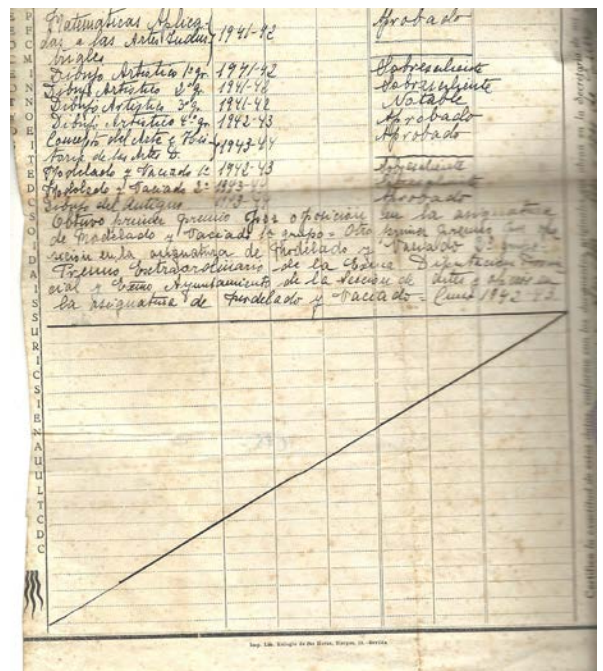 Matematicas Aplica-
das a las Artes Indus- 1941-42 Aprobado
triales
Dibujo Artistico 1º gr. 1941-42 Sobresaliente
Dibujo Artistico 2º g. 1941-42 Sobresaliente
Dibujo Artistico 3º g. 1941-42 Notable
Dibujo Artistico 4º gr. 1942-43 Aprobado
Concepto del Arte e His- Aprobado
toria de las Artes D. 1943-44
Modelado y Vaciado 1º 1942-43 Sobresaliente
Modelado y Vaciado 2º 1943-44 Sobresaliente
Dibujo del Antiguo 1943-44 Aprobado
Obtuvo primer premio por oposición en la asignatura
de Modelado y Vaciado 1º grupo = Otro primer premio por opo-
sición en la asignatura de Modelado y Vaciado 2º grupo =
Premio Extraordinario de la Excma Diputación Provin-
cial y Excmo Ayuntamiento de la Sección de Artes y oficios en
la asignatura de Modelado y Vaciado = Curso 1942-43.
Imp. Lib. Eulogio de las Heras, Sierpes, 13.-Sevilla
Certifico la exactitud de estos datos, conforme con los
obran en la Secretaría de mi